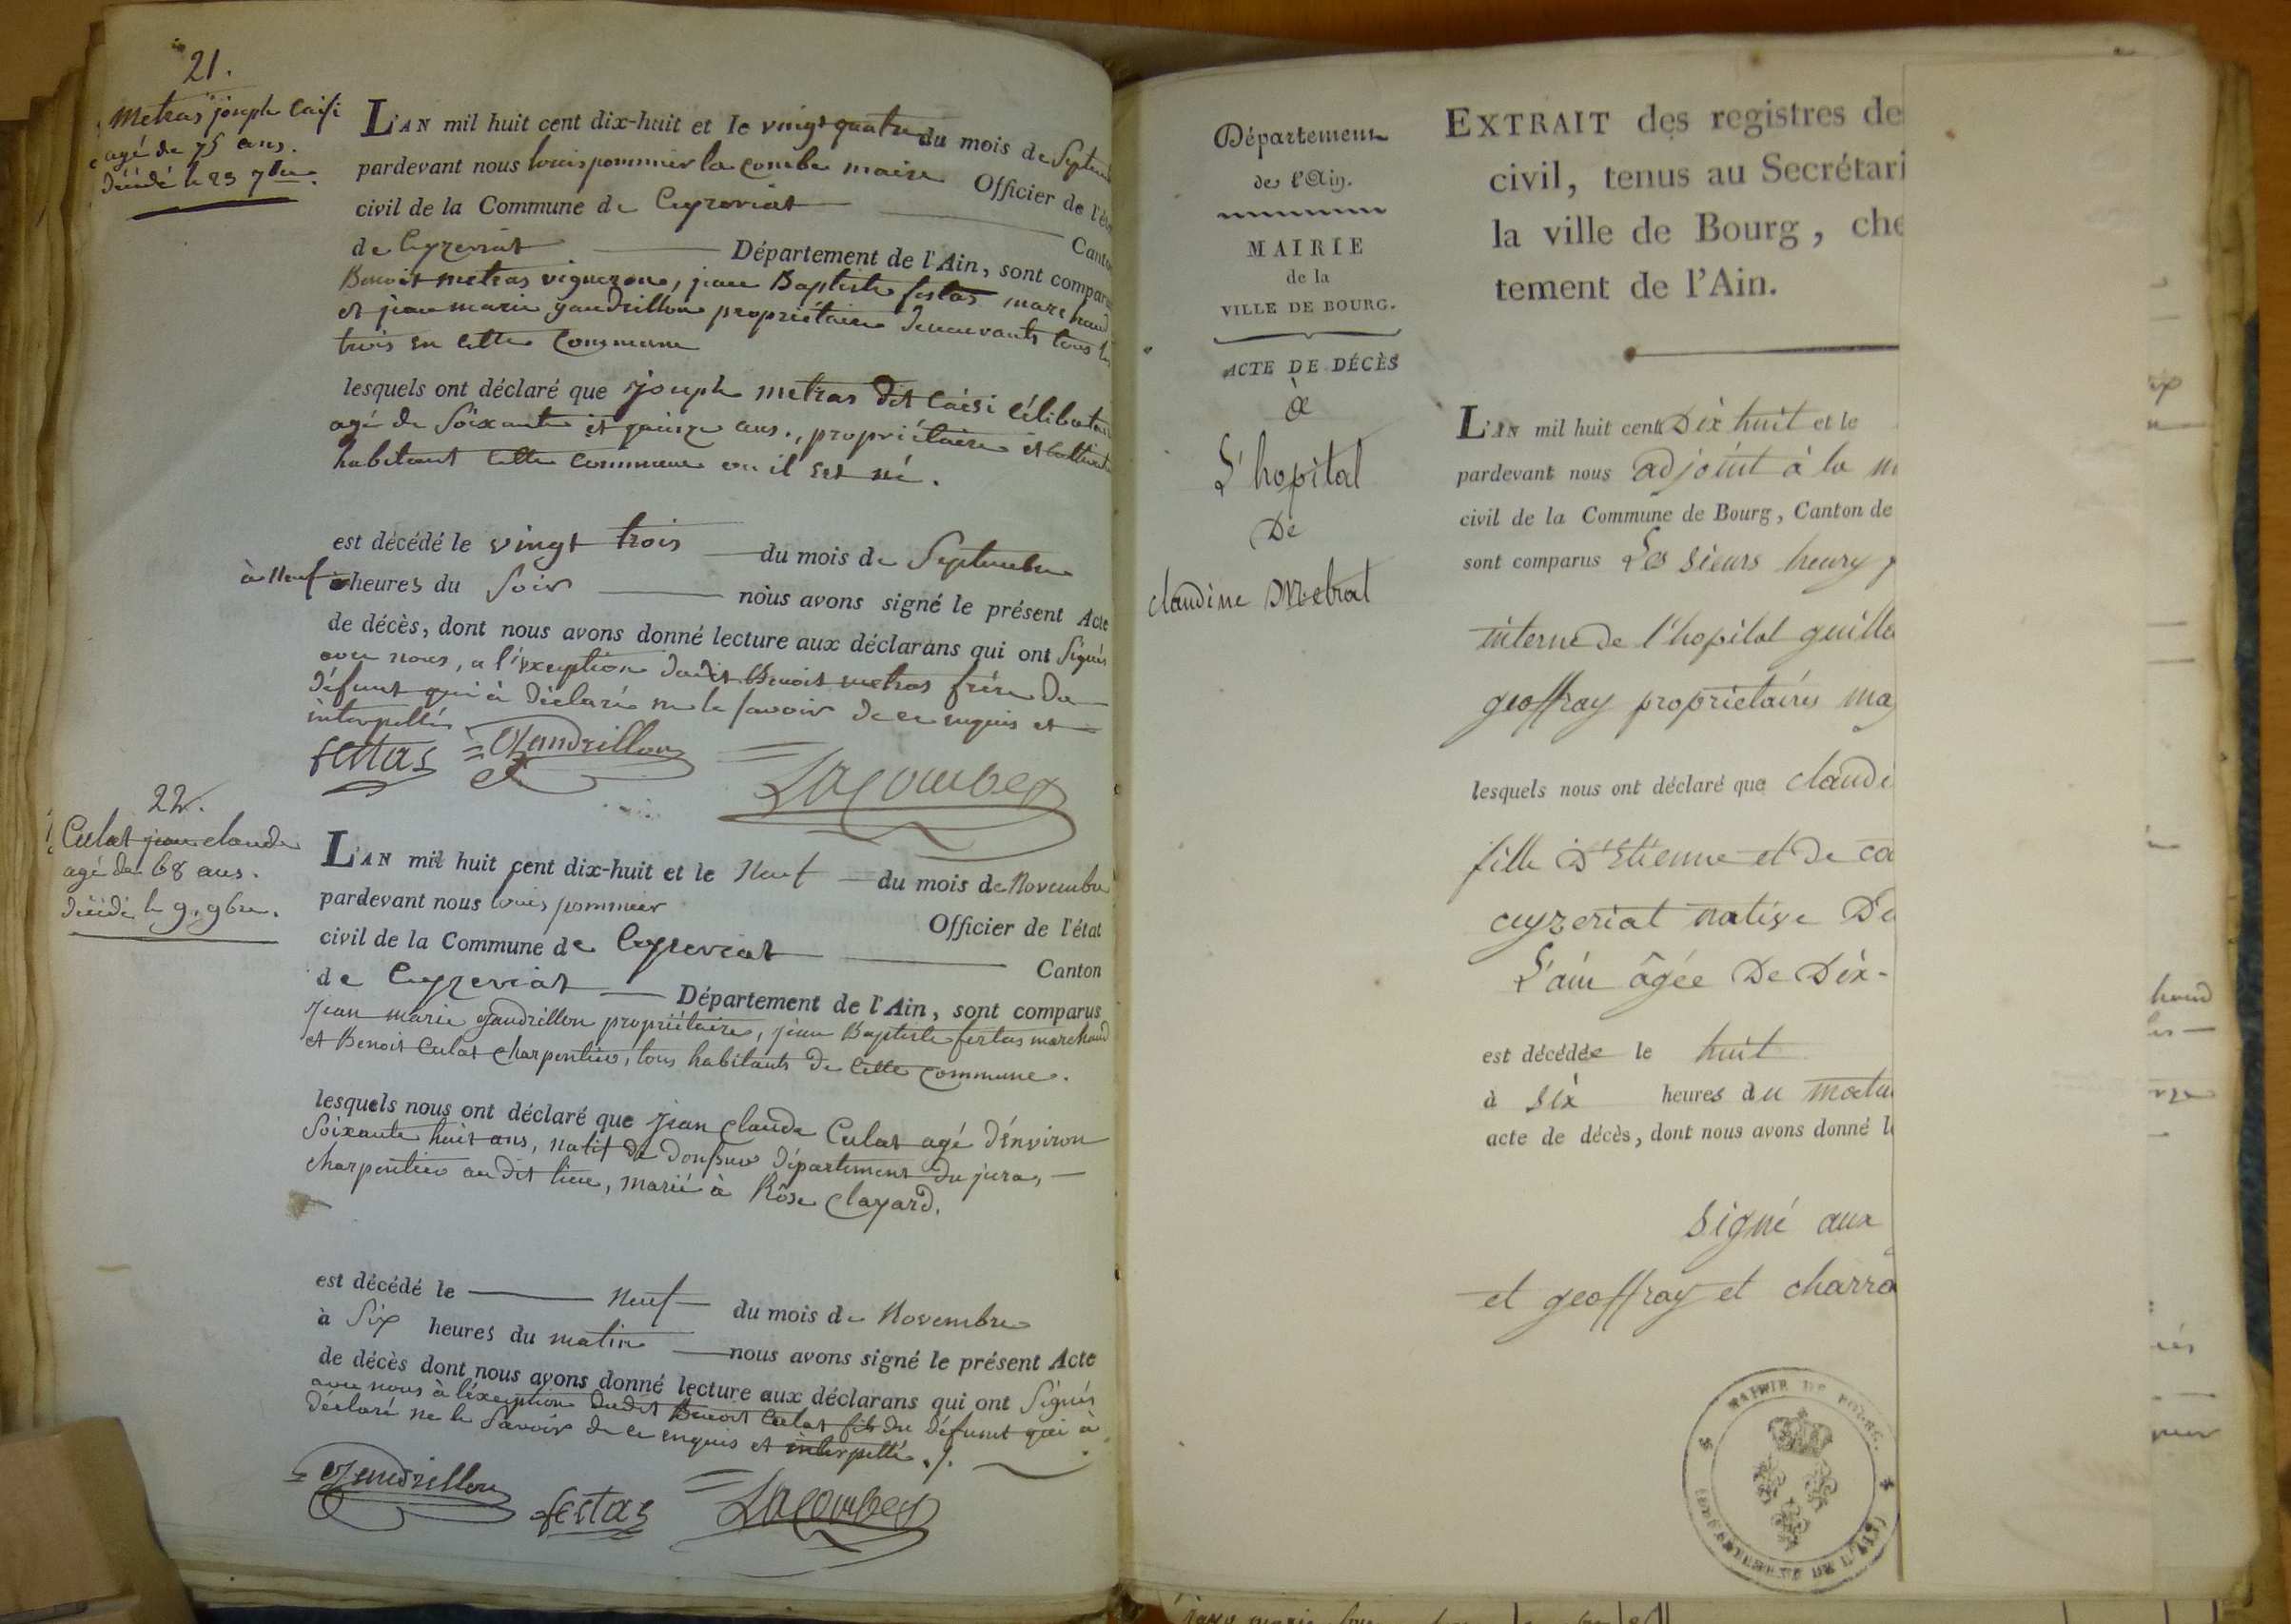 21.
Metras joseph Caisi
agé de 75 ans.
décédé le 23 7bre.
L'AN mil huit cent dix-huit et le vingt quatre du mois de Septem
pardevant nous louis pommier la combe maire Officier de l'ét
civil de la Commune de Ceyzeriat Canton
de Ceyzeriat Département de l'Ain, sont comparus
Benoit metras vigneron, jean Baptiste festas marchand
et jean marie gandrillon propriétaire demeurants tous les
trois en cette Commune
lesquels ont déclaré que joseph metras dit Caisi Célibataire
agé de Soixante et quinze ans., propriétaire et Cultivate
habitant cette commune ou il est né.
est décédé le vingt trois du mois de Septembre
à neuf heures du Soir nous avons signé le présent Acte
de décès, dont nous avons donné lecture aux déclarans qui ont Signés
avec nous, a l'exception dudit Benoit metras frère du
défunt qui à déclaré ne le savoir de ce enquis et
interpellé
festas Gandrillon Lacombe
22.
Culat jean claude
agé de 68 ans.
décédé le 9. 9bre.
L'AN mil huit cent dix-huit et le Neuf du mois de Novembre
pardevant nous louis pommier Officier de l'état
civil de la Commune de Ceyzeriat Canton
de Ceyzeriat Département de l'Ain, sont comparus
jean marie gandrillon propriétaire, jean Baptiste festas marchand
et Benoit Culat charpentier, tous habitants de cette commune.
lesquels nous ont déclaré que jean claude Culat agé d'énviron
Soixante huit ans, natif de département du jura,
charpentier au dit lieu, marié à Rôse Clayard.
est décédé le Neuf du mois de Novembre
à Six heures du matin nous avons signé le présent Acte
de décès dont nous avons donné lecture aux déclarans qui ont Signés
avec nous à léxception dudit Benoit Culat fils du défunt qui à
déclaré ne le Savoir de ce enquis et interpellé ./.
Gandrillon festas Lacombe
Département
de l'Ain.
MAIRIE
de la
VILLE DE BOURG.
ACTE DE DÉCÈS
à
L'hopital
De
claudine Mebrat
EXTRAIT des registres de
civil, tenus au Secrétari
la ville de Bourg, che
tement de l'Ain.
L'AN mil huit cent Dix huit et le
pardevant nous adjoint à la m
civil de la Commune de Bourg, Canton de
sont comparus Les sieurs henry
interne de l'hopital guille
geoffray proprietaires ma
lesquels nous ont déclaré que claudi
fille D'Etienne et de ca
ceyzeriat native De
L'ain âgée De Dix-
est décédée le huit
à six heures du matin
acte de décès, dont nous avons donné le
signé aux
et geoffray et charra
MAIRIE DE BOURG.
(DÉPARTEMENT DE L'AIN)